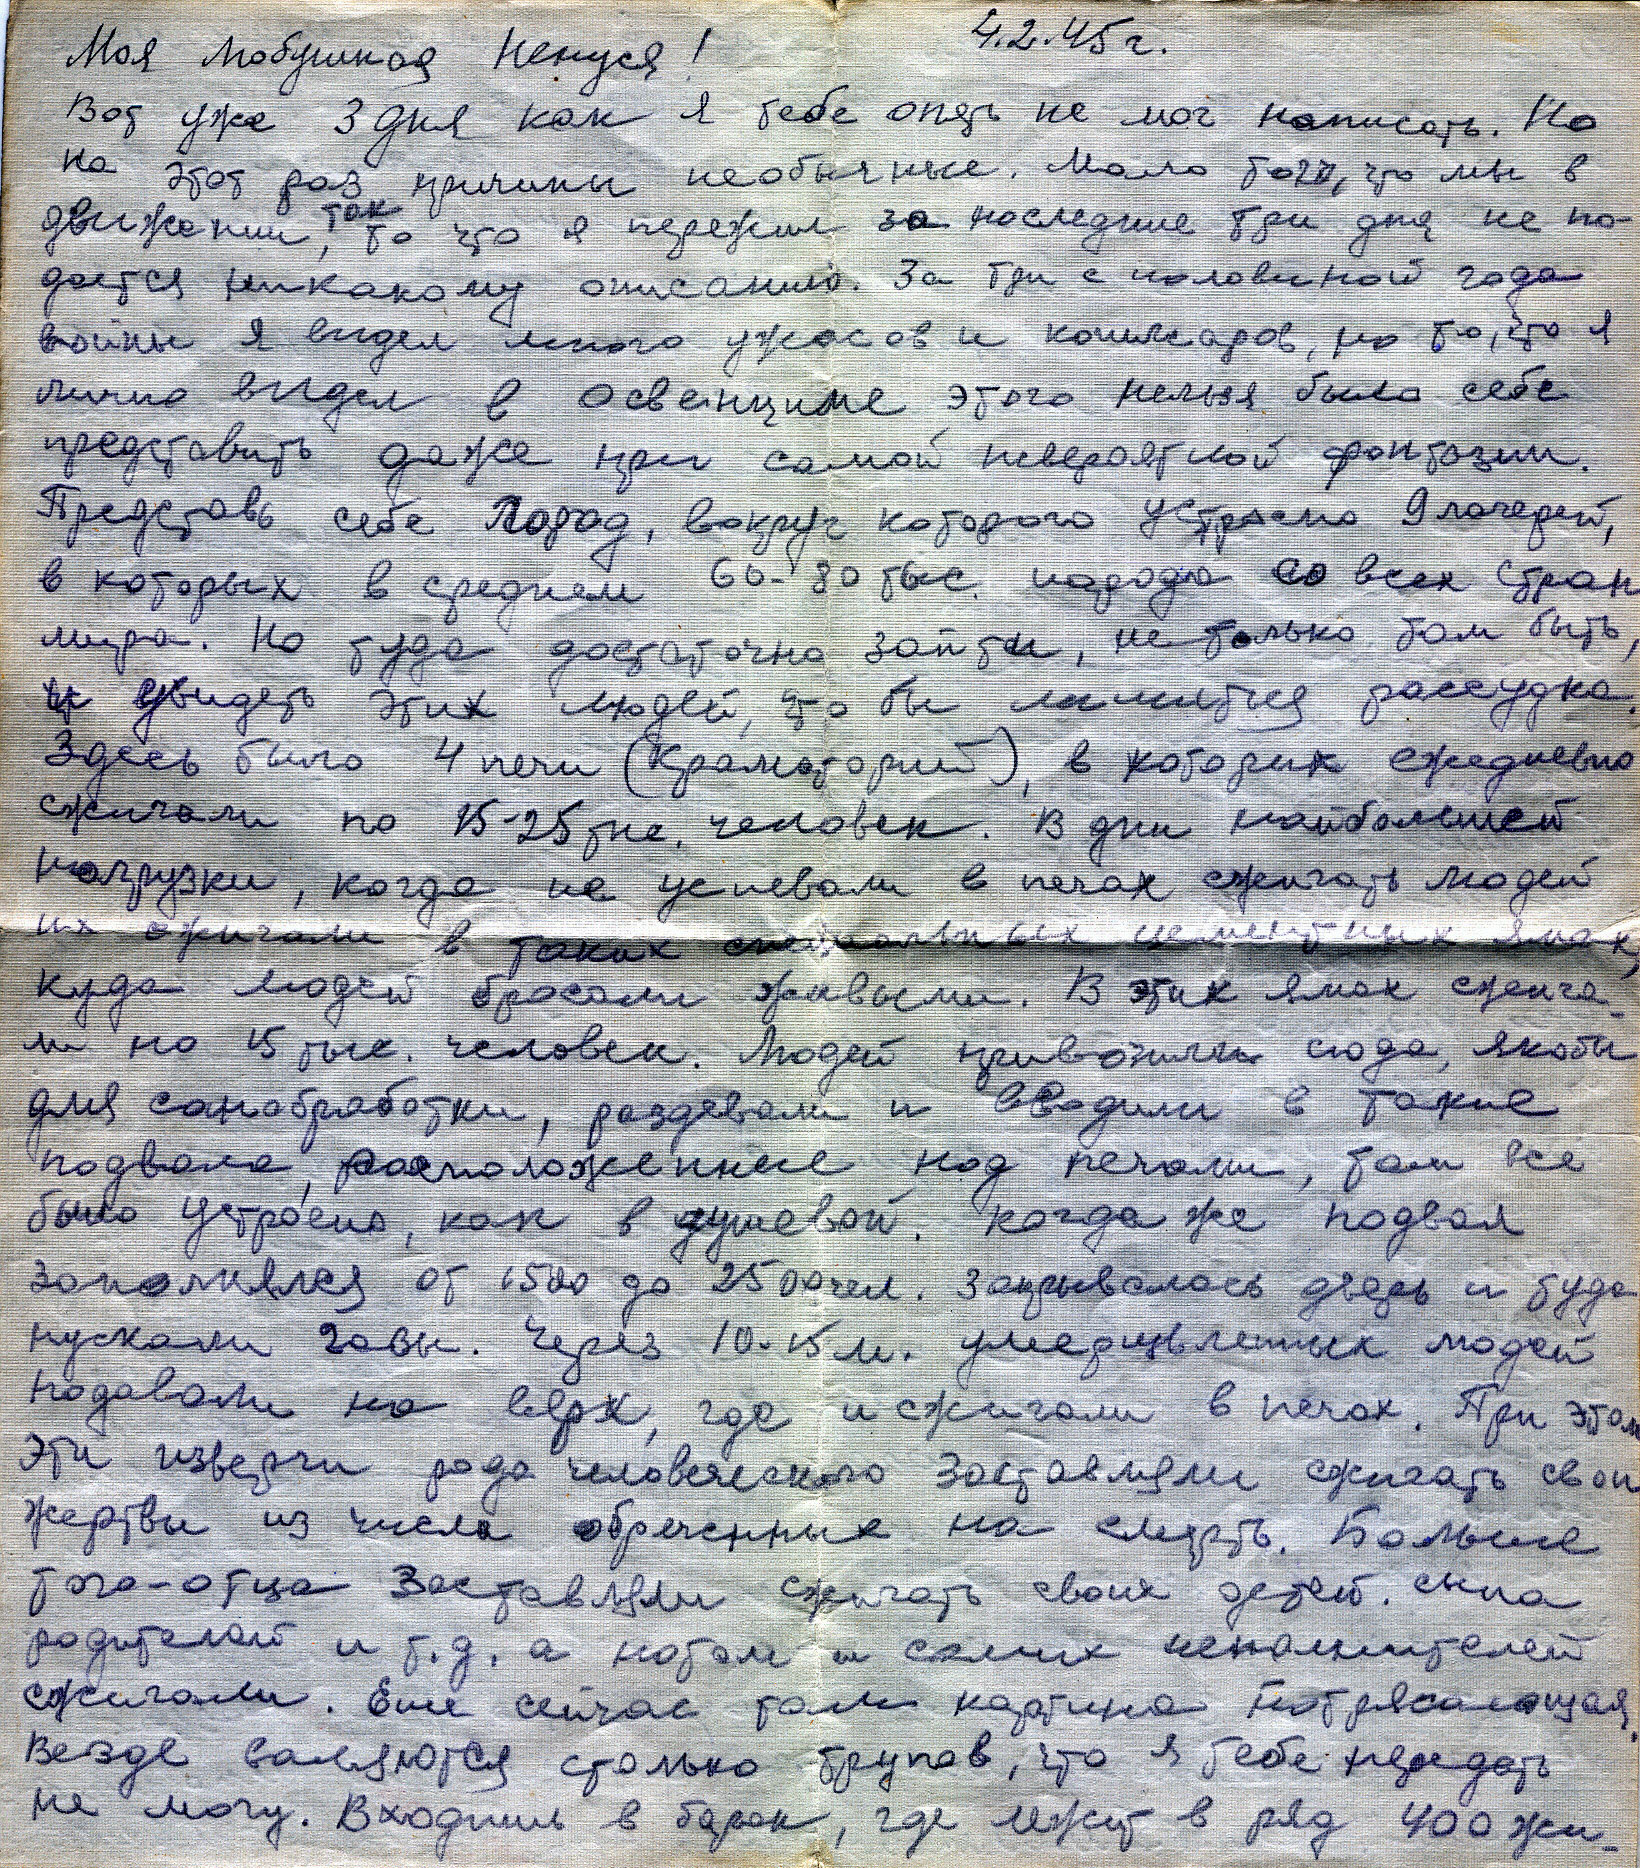 4.2.45 г.
Моя любушкая Ненуся!
Вот уже 3 дня как я тебе опять не мог написать. Но
на этот раз причины необычные. Мало того, что мы в
движении, так то что я пережил за последние три дня не по-
дается никакому описанию. За три с половиной года
войны я видел много ужасов и кошмаров, но то, что я
лично видел в Освенциме этого нельзя было себе
представить даже при самой невероятной фонтазии.
Представь себе город, вокруг которого устроено 9 лагерей,
в которых в среднем 60-80 тыс. народа со всех стран
мира. Но туда достаточно зайти, не только там быть,
и увидеть этих людей, что бы лишится рассудка.
Здесь было 4 печи (Крематорий), в которых ежедневно
сжигали по 15-25 тыс. человек. В дни наибольшей
нагрузки, когда не успевали в печах сжигать людей
их сжигали в таких специальных цементных ямах,
куда людей бросали живыми. В этих ямах сжига-
ли по 15 тыс. человек. Людей привозили сюда, якобы
для санобработки, раздевали и вводили в такие
подвала, расположенные под печами, там все
было устроено, как в душевой. Когда же подвал
заполнялся от 1500 до 2500 чел. закрывалась дверь и туда
пускали газы. Через 10-15 м. умерщвленных людей
подавали на верх, где и сжигали в печах. При этом
эти изверги рода человеческого заставляли сжигать свои
жертвы из числа обреченных на смерть. Больше
того - отца заставляли сжигать своих детей. сына
родителей и т.д. а потом и самих исполнителей
сжигали. Еще сейчас там картина потрясающая.
Везде валяются столько трупов, что я тебе передать
не могу. Входишь в барак, где лежит в ряд 400 жи-